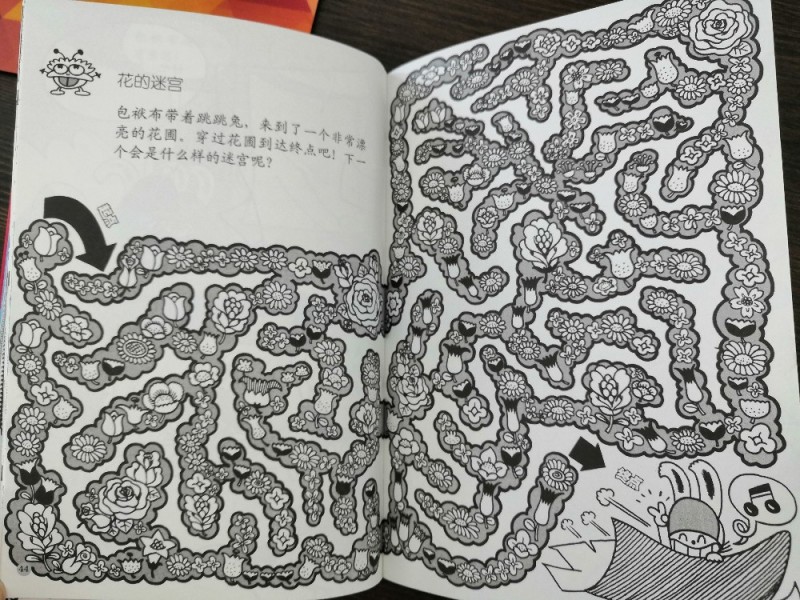 花的迷宫
包袱布带着跳跳兔，来到了一个非常漂
亮的花圃。穿过花圃到达终点吧！下一
个会是什么样的迷宫呢？
起点
终点
44